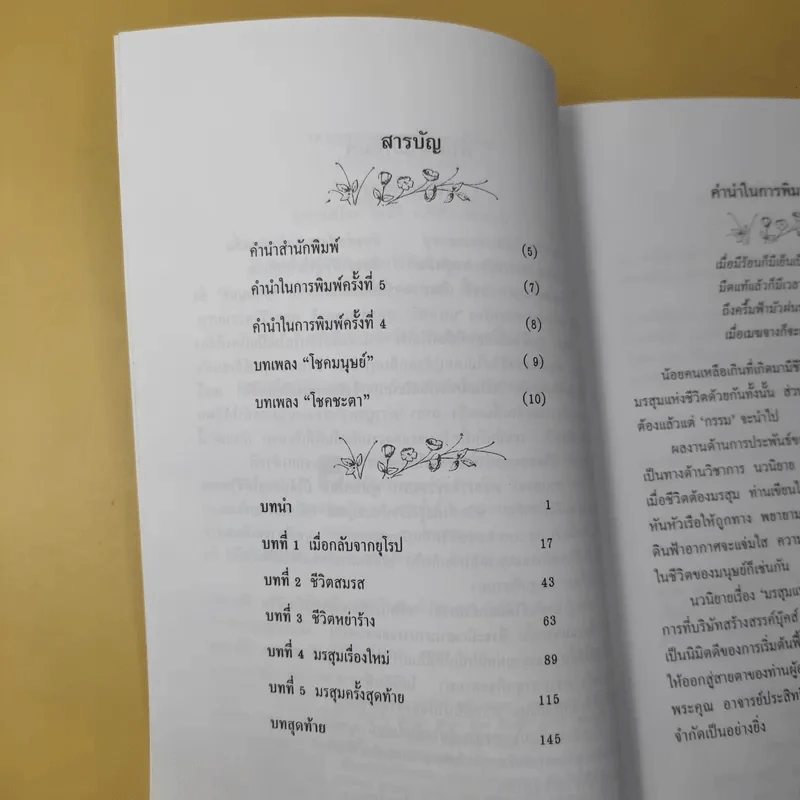 สารบัญ
คำนำสำนักพิมพ์ (5)
คำนำในการพิมพ์ครั้งที่ 5 (7)
คำนำในการพิมพ์ครั้งที่ 4 (8)
บทเพลง “โชคมนุษย์” ( 9)
บทเพลง “โชคชะตา” (10)
บทนำ 1
บทที่ 1 เมื่อกลับจากยุโรป 17
บทที่ 2 ชีวิตสมรส 43
บทที่ 3 ชีวิตหย่าร้าง 63
บทที่ 4 มรสุมเรื่องใหม่ 89
บทที่ 5 มรสุมครั้งสุดท้าย 115
บทสุดท้าย 145
คำนำในการพิม
เมื่อมีร้อนก็มีเย็น
มืดแท้แล้วก็มีเวลา
ถึงครึ้มฟ้ามัวฝน
เมื่อเมฆจางก็จะ
น้อยคนเหลือเกินที่เกิดมามีชี
มรสุมแห่งชีวิตด้วยกันทั้งนั้น ส่วน
ต้องแล้วแต่ ‘กรรม’ จะนำไป
ผลงานด้านการประพันธ์ข
เป็นทางด้านวิชาการ นวนิยาย
เมื่อชีวิตต้องมรสุม ท่านเขียนไ
ทันหัวเรือให้ถูกทาง พยายาม
ดินฟ้าอากาศจะแจ่มใส ความ
ในชีวิตของมนุษย์ก็เช่นกัน
นวนิยายเรื่อง ‘มรสุมแ
การที่บริษัทสร้างสรรค์บุ๊คส์
เป็นนิมิตดีของการเริ่มต้นฟื้
ให้ออกสู่สายตาของท่านผู้อ
พระคุณ อาจารย์ประสิท
จำกัดเป็นอย่างยิ่ง